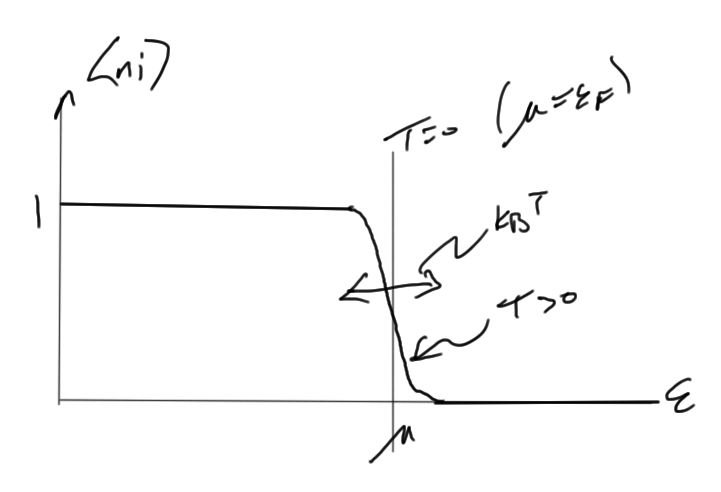 ⟨ni⟩
T=0 (μ=εF)
1
kBT
T>0
ε
μ